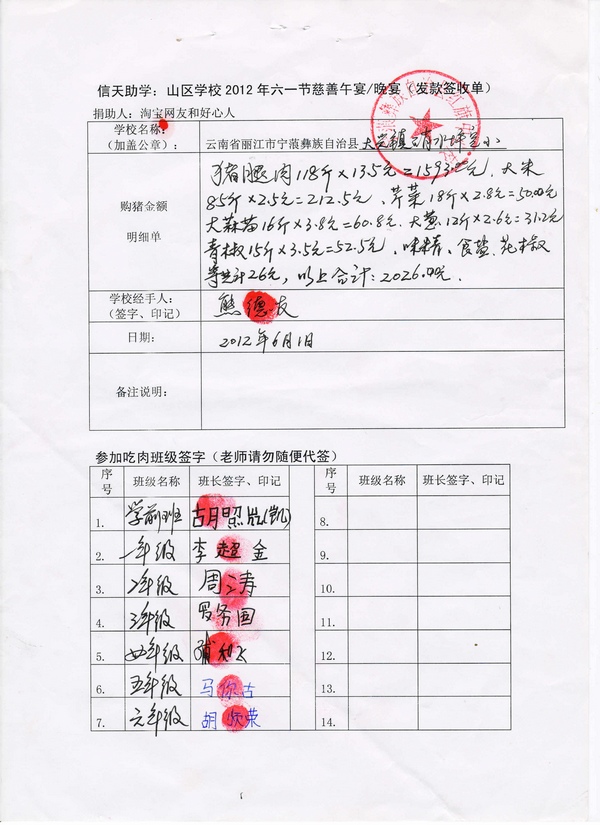 信天助学：山区学校2012年六一节慈善午宴/晚宴（发款签收单）
捐助人：淘宝网友和好心人
学校名称：
（加盖公章）：
云南省丽江市宁蒗彝族自治县大兴镇 水坪完小
购猪金额
明细单
猪腿肉118斤×13.5元=1593.00元、大米
85斤×2.5元=212.5元、芹菜18斤×2.8元=50.00元
大蒜苗16斤×3.8元=60.8元、大葱12斤×2.6元=31.2元
青椒15斤×3.5元=52.5元、味精、食盐、花椒
等共计26元，以上合计：2026.00元.
学校经手人：
（签字、印记）
熊德友
日期：
2012年6月1日
备注说明：
参加吃肉班级签字（老师请勿随便代签）
序号 班级名称 班长签字、印记 序号 班级名称 班长签字、印记
1. 学前班 胡照 (凯) 8.
2. 一年级 李超金 9.
3. 2年级 周 涛 10.
4. 3年级 罗务国 11.
5. 四年级 12.
6. 五年级 马你古 13.
7. 六年级 胡 荣 14.